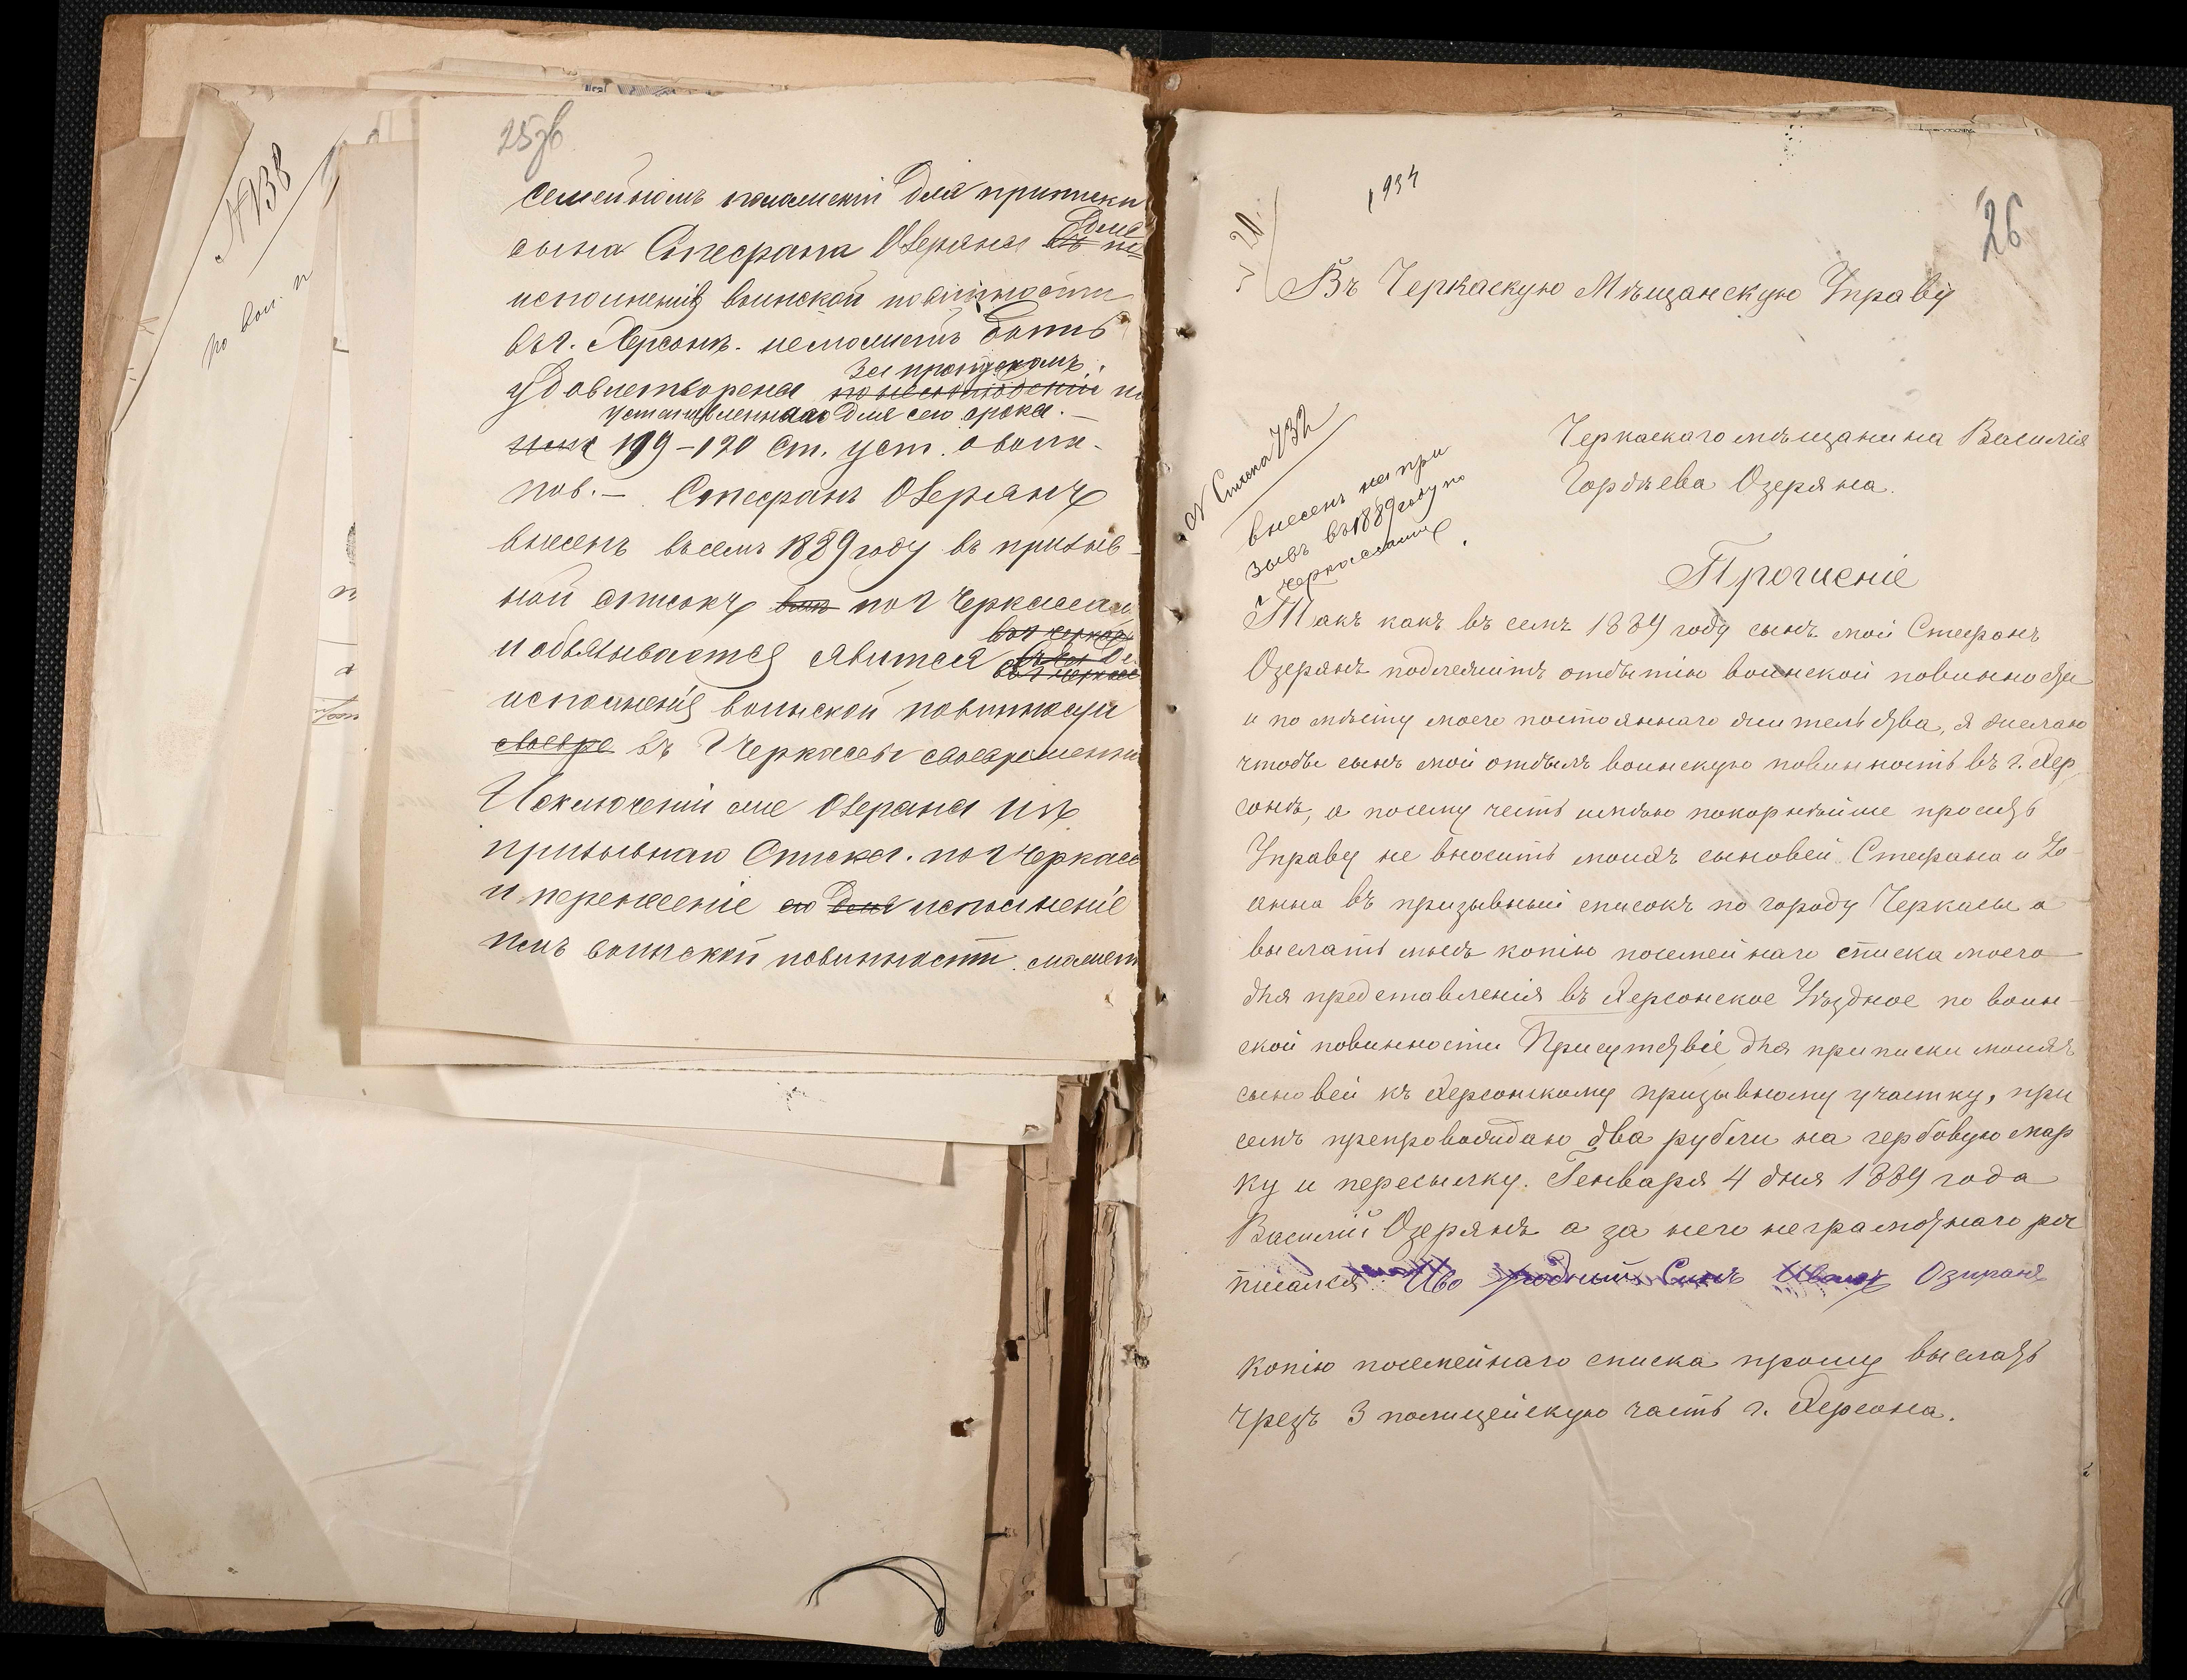 25об
семейномъ положеніи для приписки
сына Стефана Озеряна для
исполненія воинской повинности
въ г. Херсонъ. неможетъ быть
за пропускомъ
удовлетворена по несоблюденіи
установленнаго для сего срока. —
119-120 ст. уст. о воин.
пов. — Стефанъ Озерянъ
внесенъ въ семъ 1889 году въ призыв-
ной списокъ по г Черкассам
и обязывается явится
исполненія воинской повинности
своевре въ г Черкассы своевременно
Исключеніи же Озеряна изъ
призывнаго Списка. по г Черкасс
и перенесеніе его для исполненіе
имъ воинской повинности. можетъ
№ 138
по вои. п
1934
20
26
Въ Черкаскую Мѣщанскую Управу
Черкаскаго мѣщанина Василія
Гордѣева Озеряна.
№ Списка 732
внесенъ на при
зывъ въ 1889 году по
г Черкассамъ.
Прошеніе
Такъ какъ въ семъ 1889 году сынъ мой Стефанъ
Озерянъ подлежитъ отбытію воинской повинности
и по мѣсту моего постояннаго жительства, я желаю
чтобы сынъ мой отбылъ воинскую повинность въ г. Хер
сонѣ, а посему честь имѣю покорнѣйше просить
Управу не вносить моихъ сыновей Стефана и Іо
анна въ призывный списокъ по городу Черкасы а
выслать мнѣ копію посемейнаго списка моего
для представленія въ Херсонское Уѣздное по воин-
ской повинности Присутствіе для приписки моихъ
сыновей къ Херсонскому призывному участку, при
семъ препровождаю два рубли на гербовую мар
ку и пересылку. Генваря 4 дня 1889 года
Василій Озерянъ а за него неграмотнаго рос
писался Иво родный Сынъ Иванъ Озиранъ
Копію посемейнаго списка прошу выслать
чрезъ 3 полицейскую часть г. Херсона.